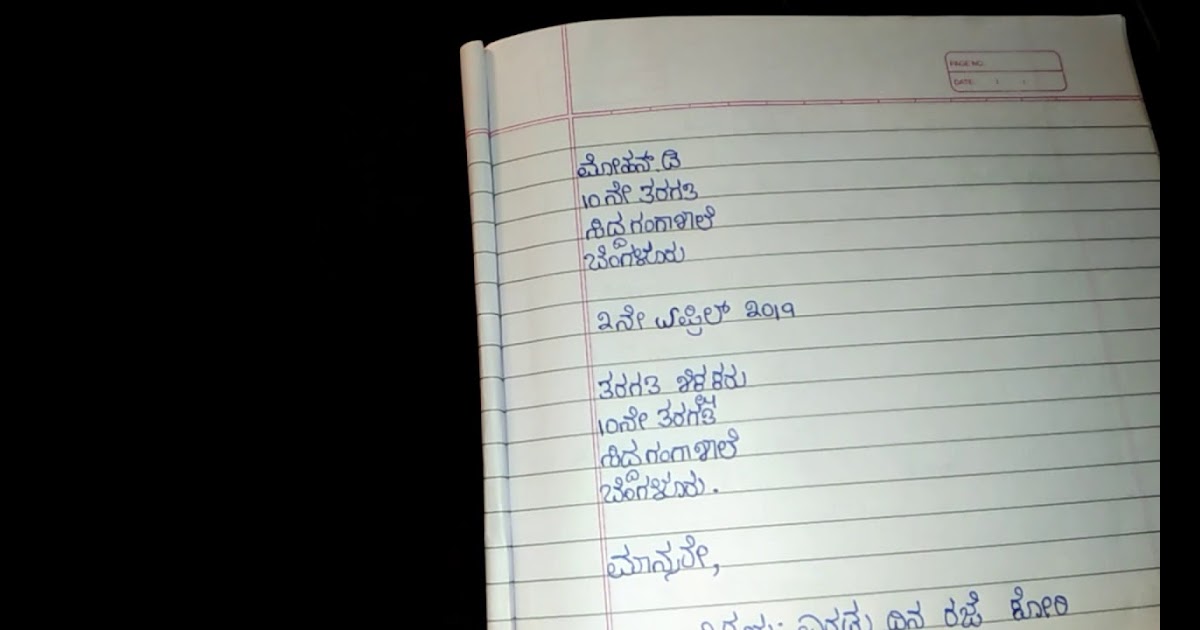 PAGE NO.
DATE: / /
ಮೋಹನ್.ಡಿ
10ನೇ ತರಗತಿ
ಸಿದ್ದಗಂಗಾಶಾಲೆ
ಬೆಂಗಳೂರು
೭ನೇ ಏಪ್ರಿಲ್ 2019
ತರಗತಿ ಶಿಕ್ಷಕರು
10ನೇ ತರಗತಿ
ಸಿದ್ದಗಂಗಾಶಾಲೆ
ಬೆಂಗಳೂರು.
ಮಾನ್ಯರೇ,
ವಿಷಯ: ಎರಡು ದಿನ ರಜೆ ಕೋರಿ